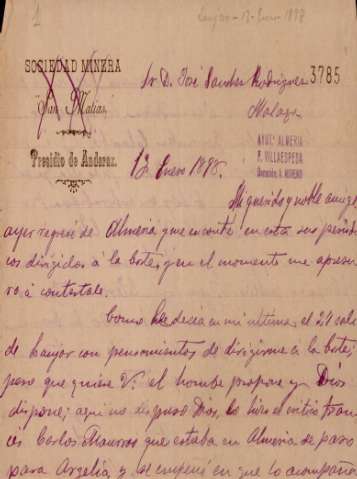 1
Laujar - 13-Enero 1898
SOCIEDAD MINERA
"San Matías"
Presidio de Andarax.
Sr. D. José Sanchez Rodriguez
3785
Malaga
AYUT. ALMERIA
F. VILLAESPESA
Donación, A. MORENO
13 Enero 1898.
Mi querido y noble amigo:
ayer regresé de Almeria y encontré en esta sus periódi
cos dirigidos á la bote, y en el momento me apresu
ro á contestale.
Como le decia en mi ultima, el 21 sali
de Laujar con pensamientos de dirigirme á la bote;
pero que quiere V. el hombre propone y Dios
dispone; aqui no dispuso Dios, lo hizo el critico fran
ces Carlos Maurras que estaba en Almeria de paso
para Argelia, y se empeñó en que lo acompaña